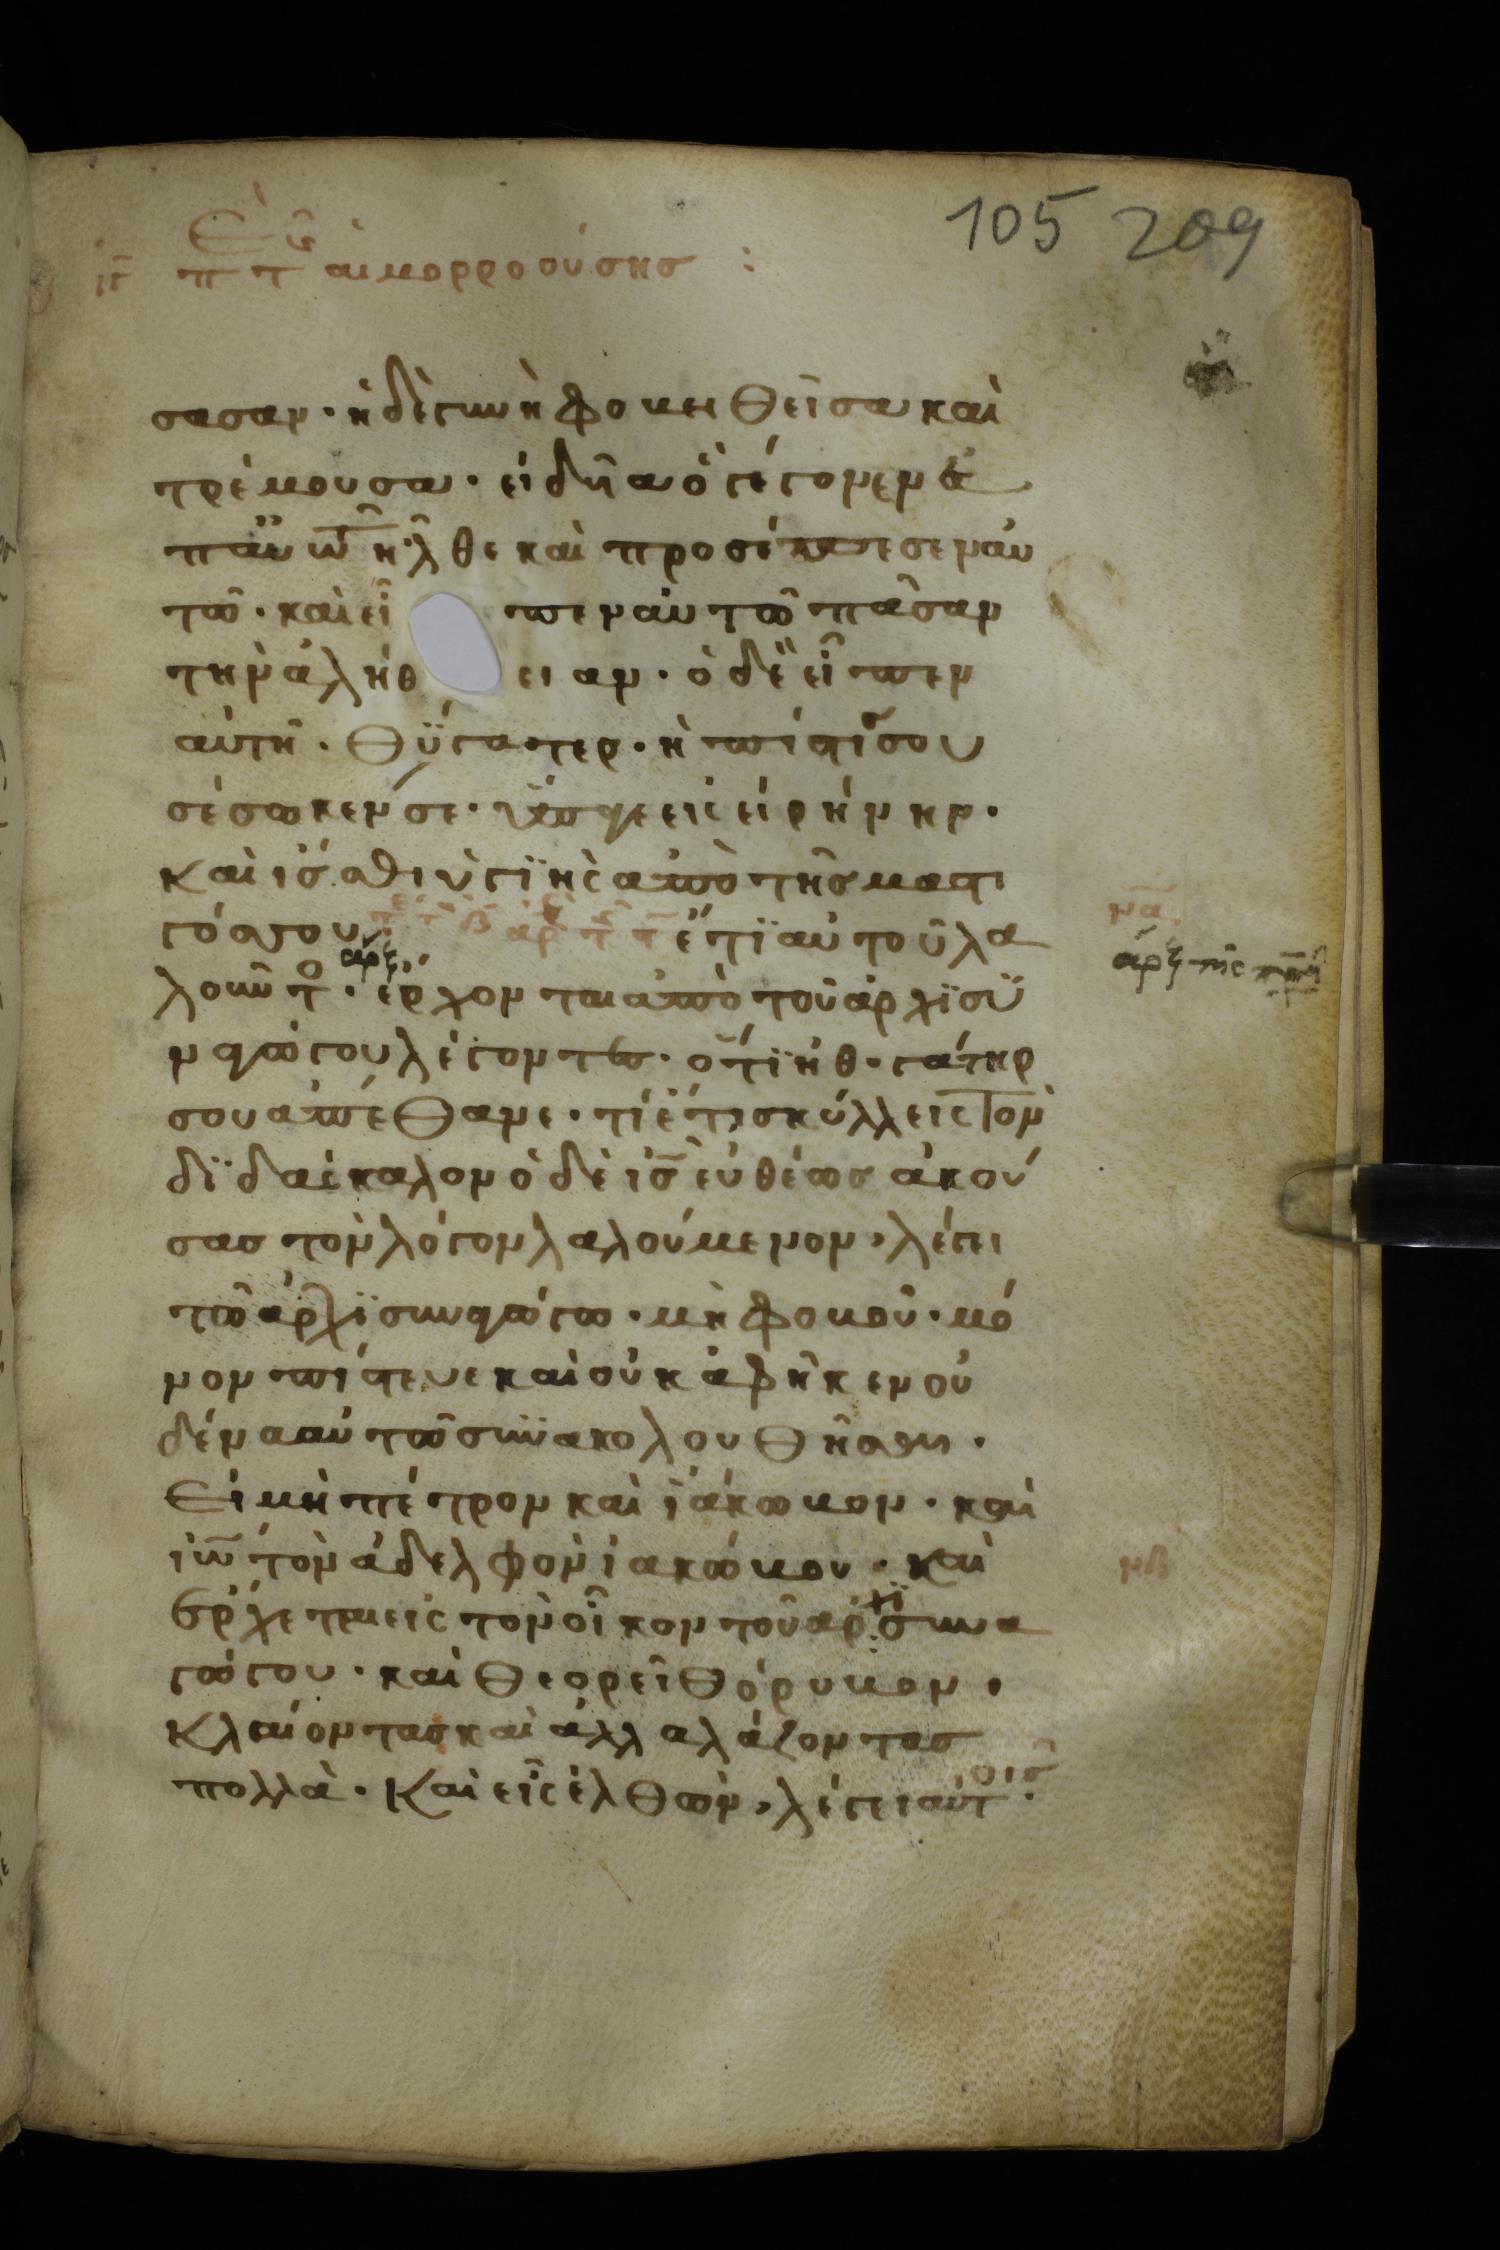 105 209
ιγ π τ αἱμορροούσης :
σασαν · ἡ δὲ γυνὴ φοβηθεῖσα καὶ
τρέμουσα · εἰδυῖα ὃ γέγονεν ἐ
π' αὐτῆ ἦλθε καὶ προσέπεσεν αὐ
τῶ · καὶ εἶπεν αὐτῶ πᾶσαν
τὴν ἀλήθειαν · ὁ δὲ εἶπεν
αὐτῆ · Θύγατερ · ἡ πίστις σου
σέσωκέν σε · ὕπαγε εἰς εἰρήνην ·
Καὶ ἴσθι ὑγιῆς ἀπὸ τῆς μαστι
γός σου ἔτι αὐτοῦ λα
λοῦντος · ἔρχονται ἀπὸ τοῦ ἀρχισυ
ναγώγου λέγοντες · ὅτι ἡ θυγάτηρ
σου ἀπέθανε · τί ἔτι σκύλλεις τὸν
διδάσκαλον ὁ δὲ ις εὐθέως ἀκού
σας τὸν λόγον λαλούμενον, λέγει
τῶ ἀρχισυναγώγω · μὴ φοβοῦ · μό
νον πίστευε καὶ οὐκ ἀφῆκεν οὐ
δένα αὐτῶ συνακολουθῆσαι ·
Εἰ μὴ πέτρον καὶ ἰάκωβον · καὶ
ιω τὸν ἀδελφὸν ἰακώβου · Καὶ
ἔρχεται εἰς τὸν οἶκον τοῦ ἀρχισυνα
γώγου · καὶ θεορεῖ θόρυβον ·
Κλαίοντας καὶ ἀλλαλάζοντας
πολλὰ · Καὶ εἰσελθὼν, λέγει αὐτοῖς ·
μα
μβ